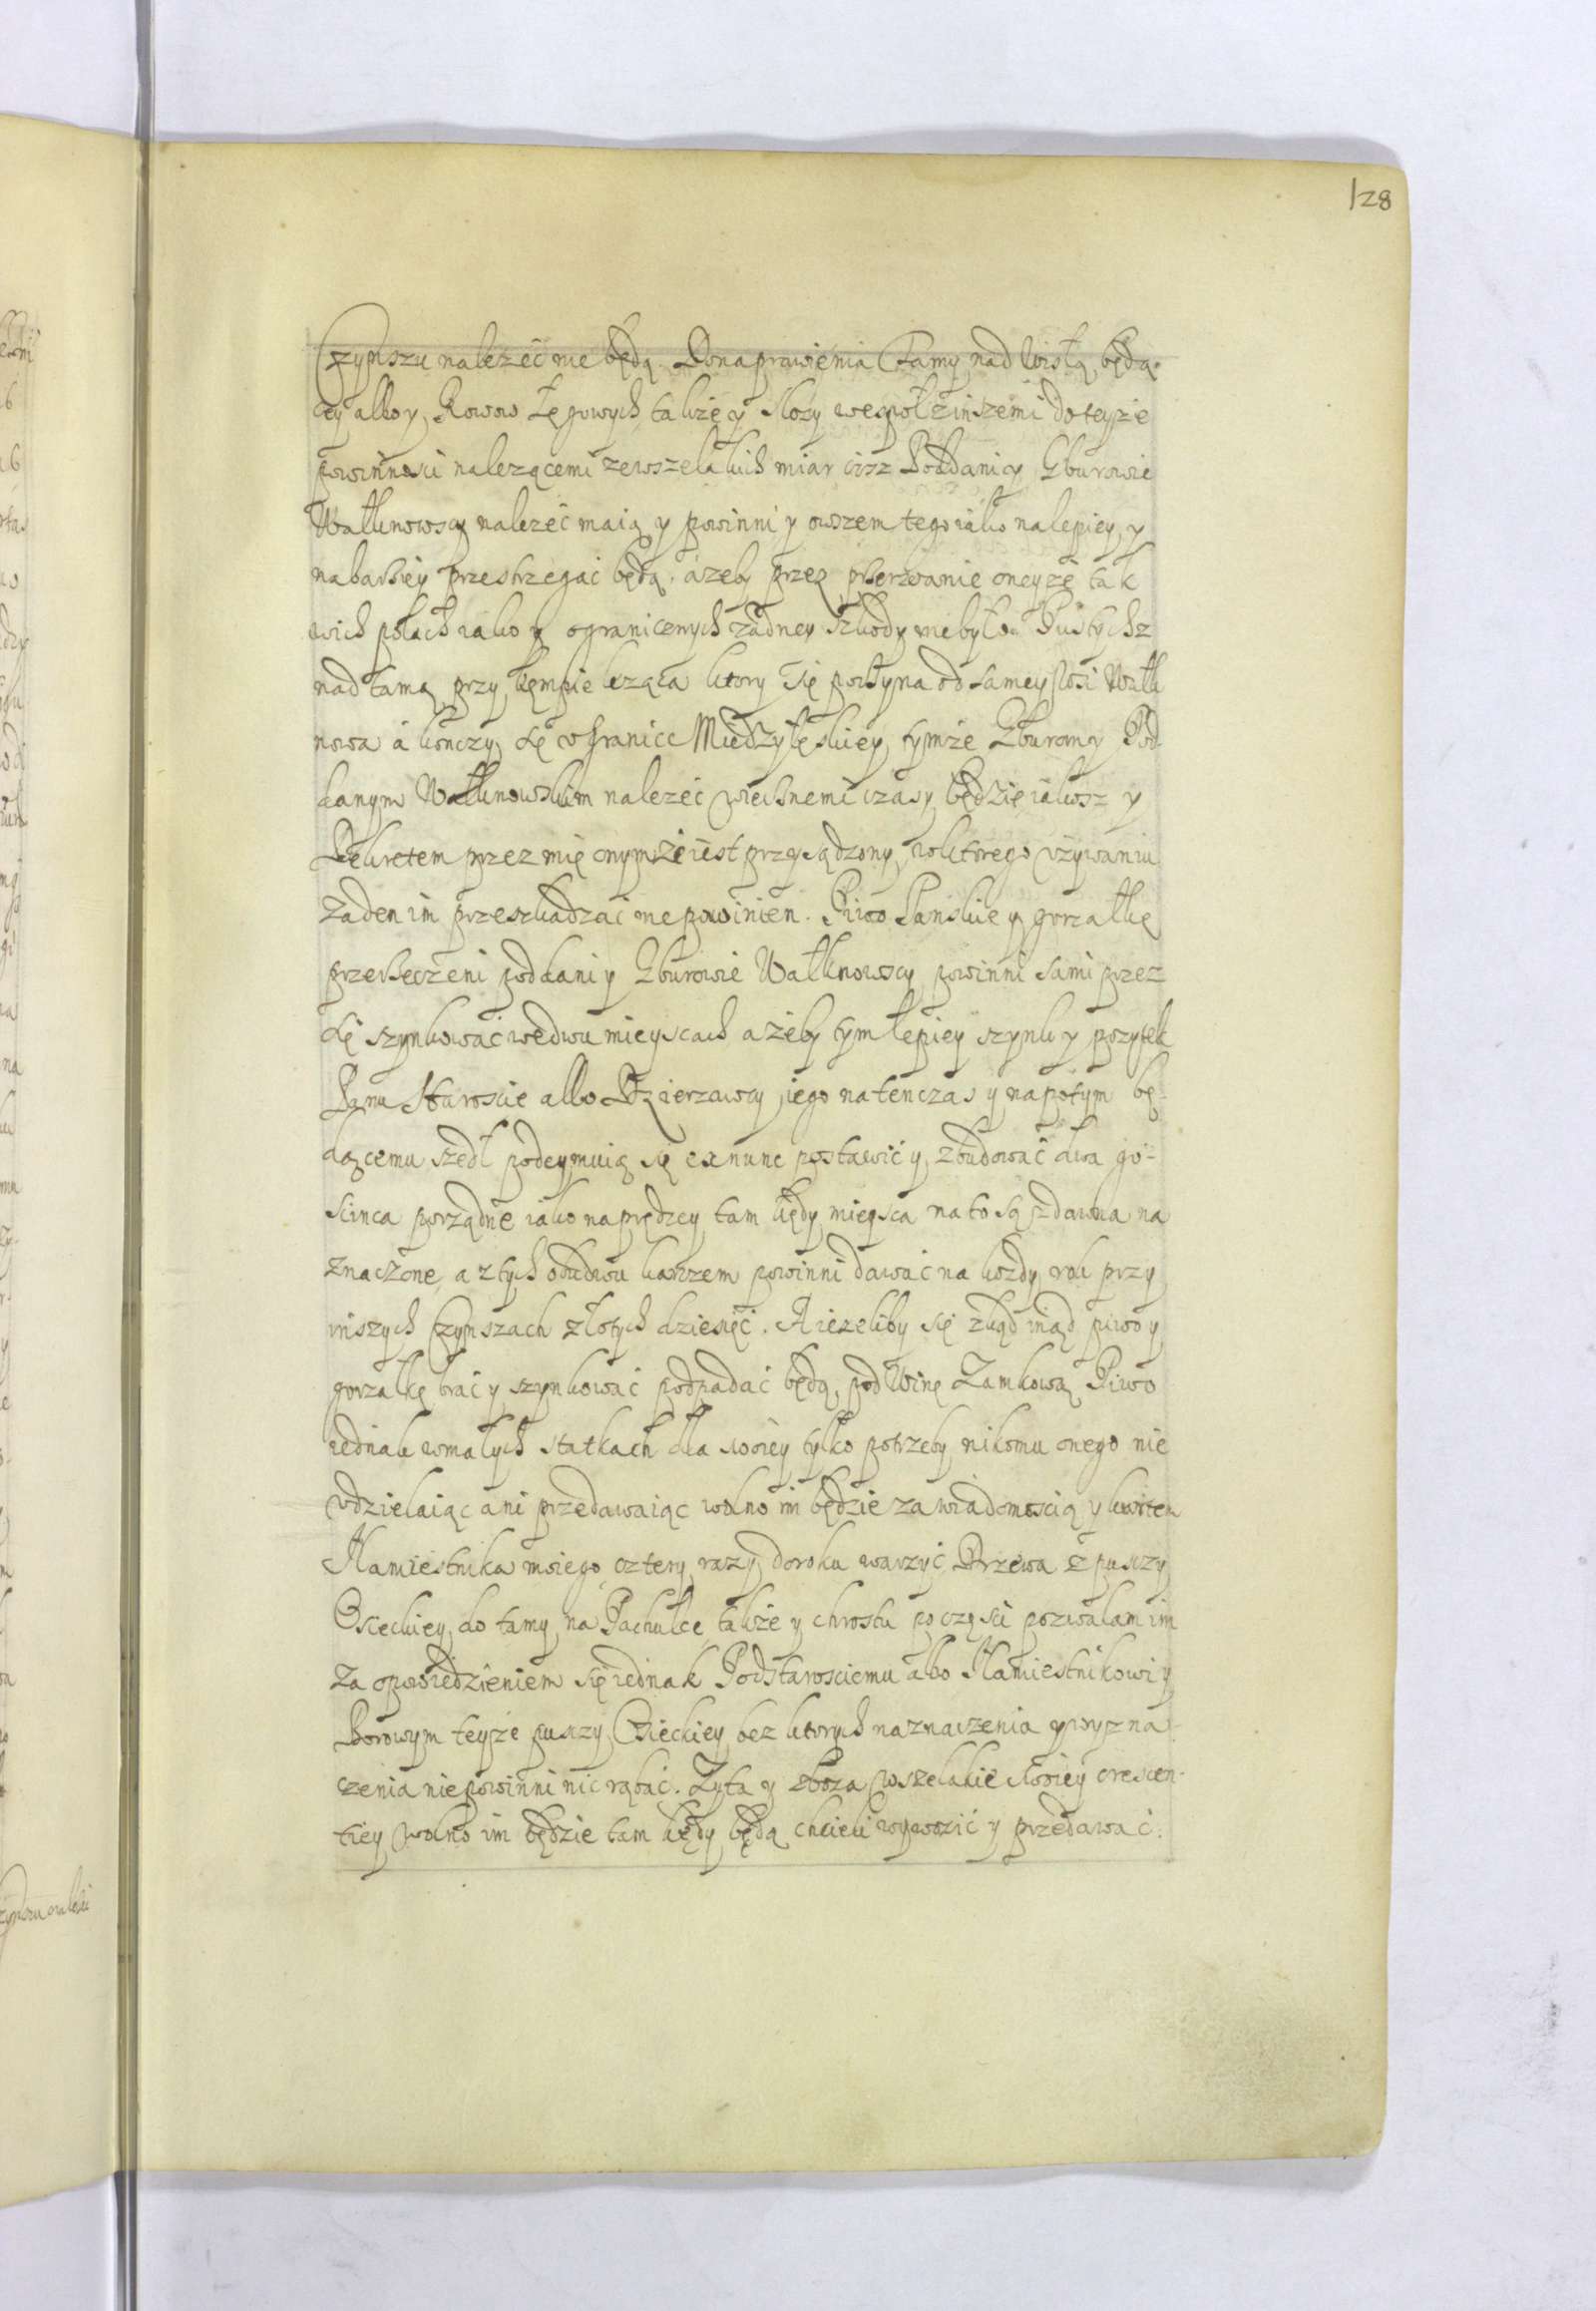 128
Czynszu nalezeć nie będą. Do naprawienia Tamy nad Wisłą będą-
cey albo y Rowow Łęgowych takze y Slozy wespoł z inszemi do teyze
powinnosci nalezącemi zewszelakich miar cisz Poddani y Gburowie
Wałknowscy nalezeć maią y powinni y owszem tego iako nalepiey y
nabarziey przestrzegać będą. azeby przez przerwanie oneyze tak
wich polach iako y ogranicznych zadney szkody niebyło. Pustych z
nad tamą przy kempie lezącą ktory się poczyna od samey Slozi Wałk
nowa a konczy się w Granicc Miedzyłęskiey tymze Gburom y Pod
danym Wałknowskim nalezeć wiecznemi czasy będzie iakosz y
Dekretem przez mię onymze iest przysądzony, wktorego vzywaniu
zaden im przeszkadzać nie powinien. Piwo Panskie y gorzałkę
przerzeczeni poddani y Gburowie Wałknowscy powinni sami przez
się szynkować we dwu mieyscach a zeby tym lepiey szynk y pozytek
Panu Staroscie albo Dzierzawcy iego natenczas y napotym bę-
dącemu szedł podeymuią się exnunc postawić y zbudować dwa go-
scinca porządne iako naprędzey tam kędy mieysca na to są zdawna na
znaczone, a z tych obudwu karczem powinni dawać na kozdy rok przy
inszych Czynszach złotych dziesięć. A iezeliby się zkąd inąd piwo y
gorzałkę brać y szynkować podpadać będą pod Winę Zamkową Piwo
iednak wmałych statkach dla swoiey tylko potrzeby nikomu onego nie
vdzielaiąc ani przedawaiąc wolno im będzie za wiadomoscią y kwitem
Namiestnika moiego cztery razy doroku warzyć Drzewa z puszczy
Osieckiey do tamy na Pachulce takze y chrostu po częsci pozwalam im
za opowiedzieniem się iednak Podstarosciemu albo Namiestnikowi y
Borowym teyze puszczy Osieckiey bez ktorych naznaczenia y wyzna-
czenia niepowinni nic rąbać. Zyta y zboza wszelakie swoiey crescen-
tiey wolno im będzie tam kędy będą chcieli wywozić y przedawać.